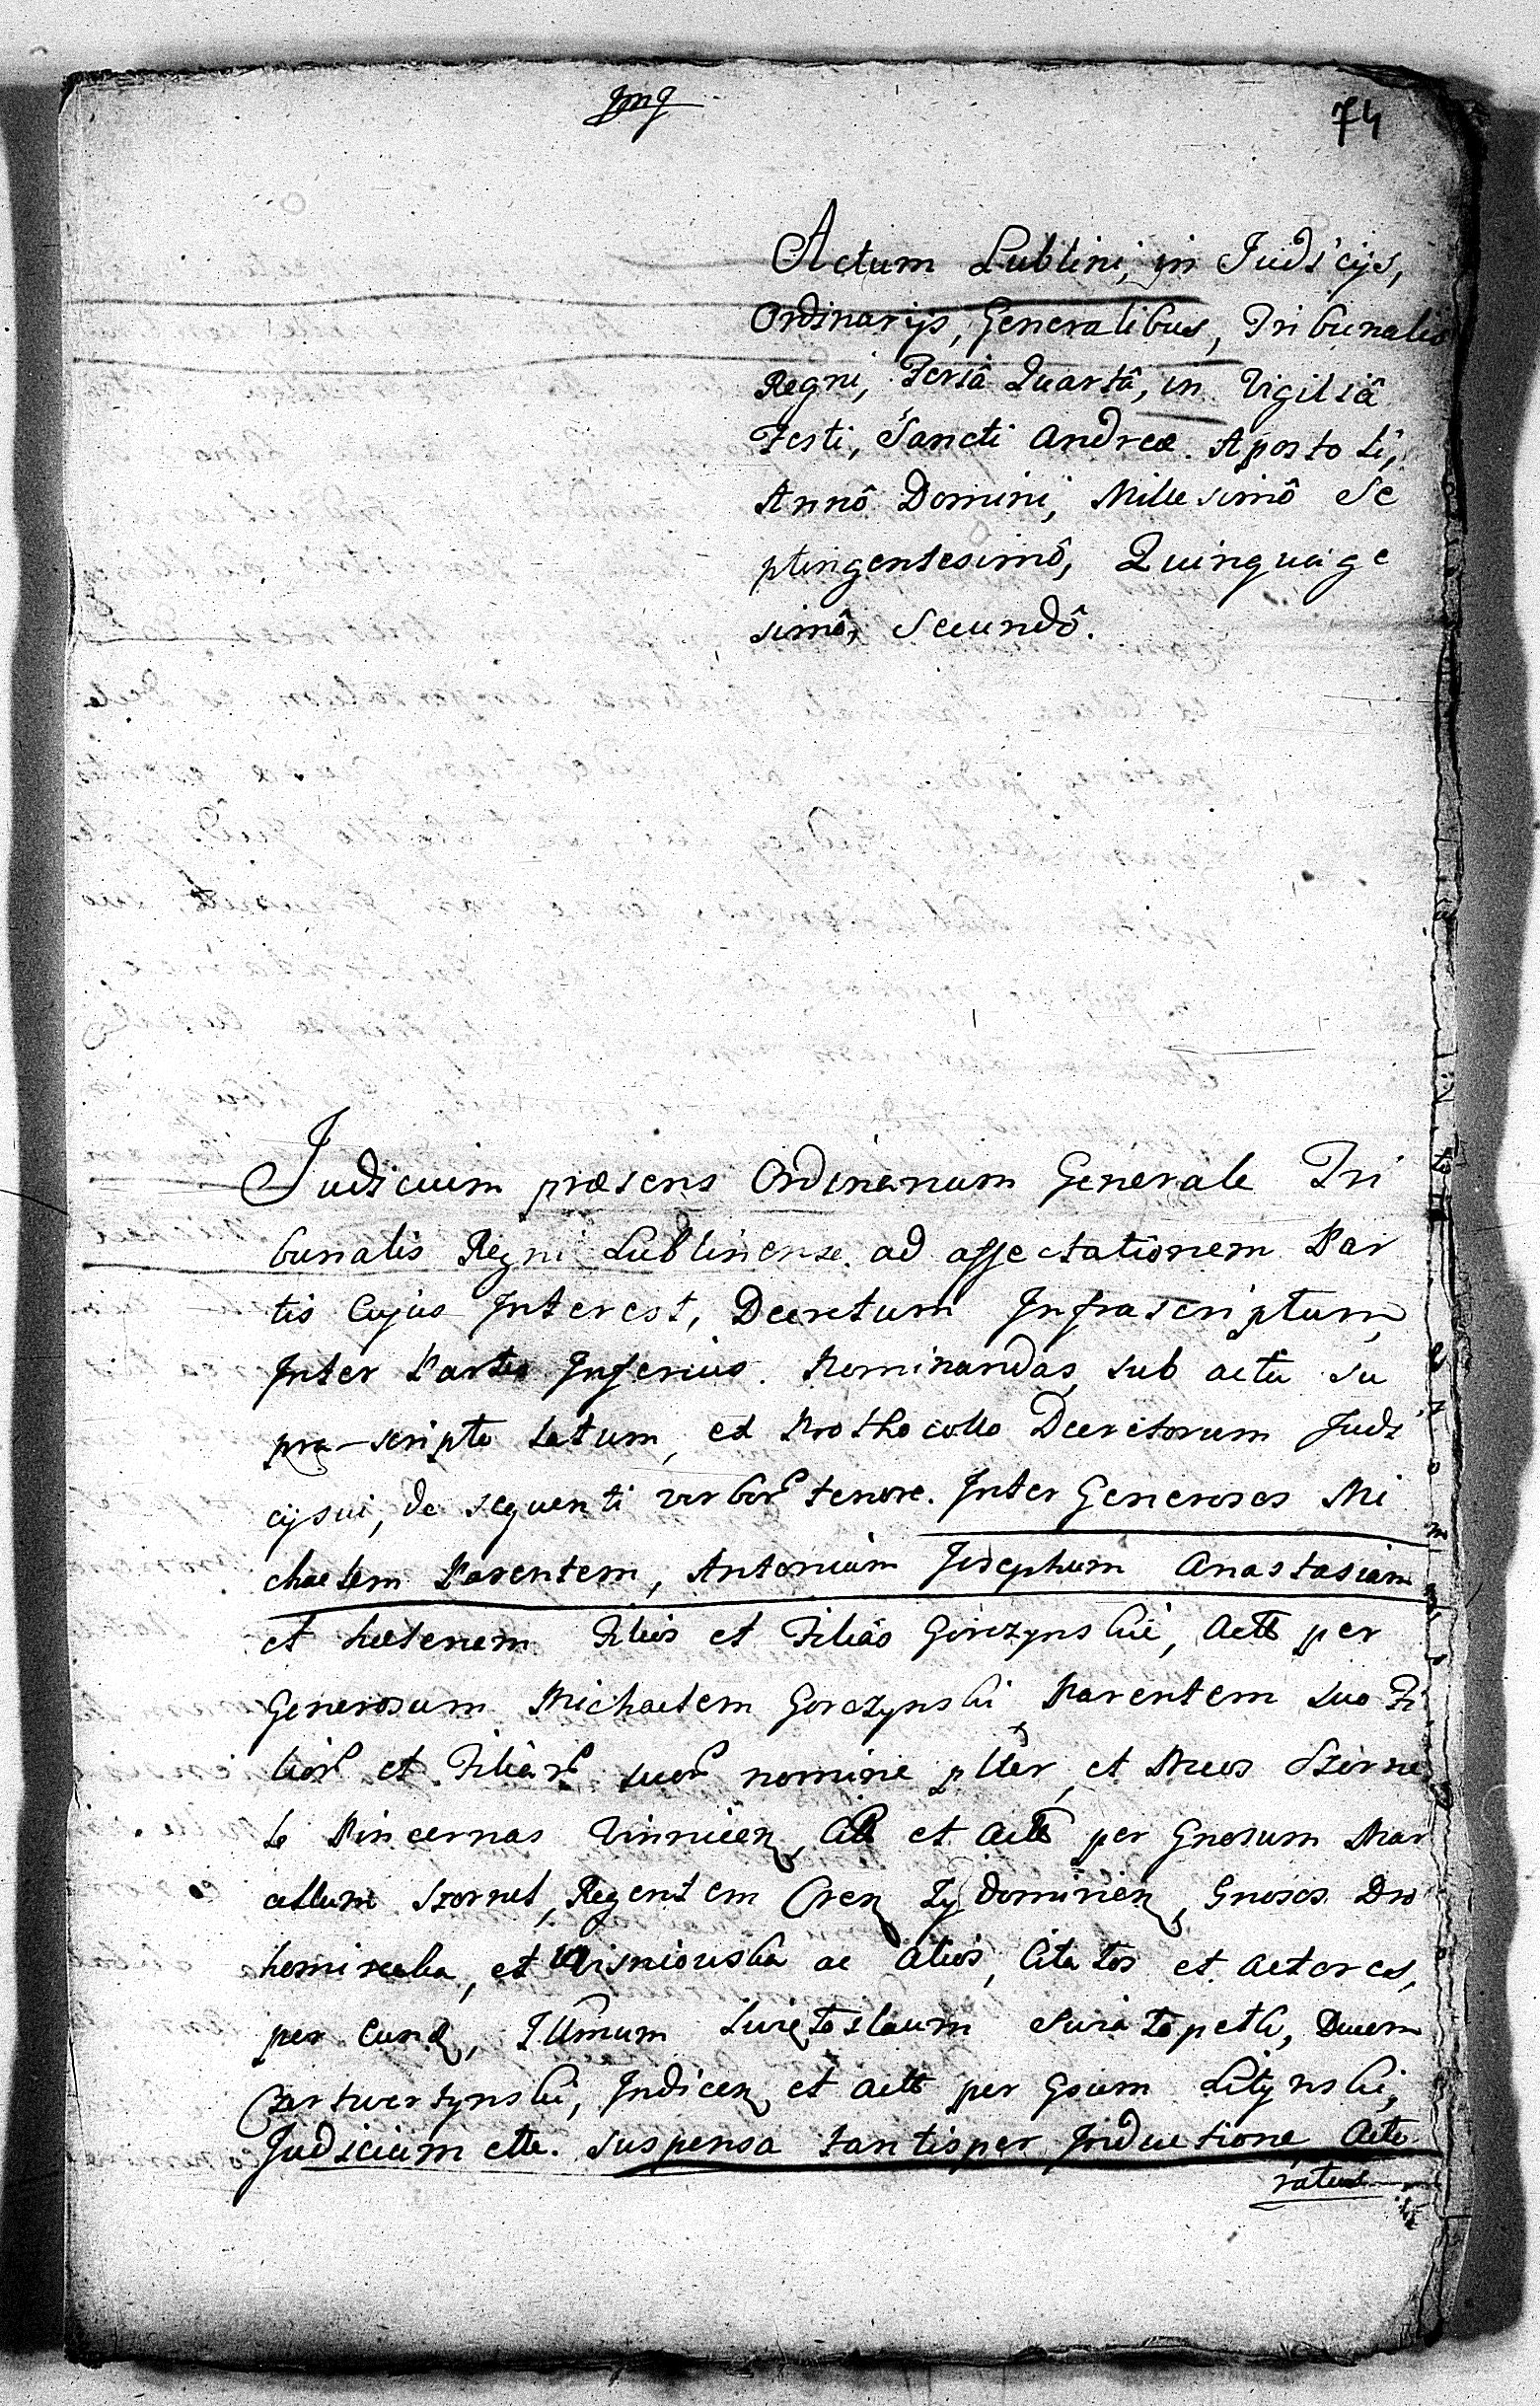 74
Actum Lublini, in Judicijs,
Ordinarijs, Generalibus, Tribunalis
Regni, Feriâ Quartâ, in Vigiliâ
Festi, Sancti Andreæ Apostoli,
Annô Domini, Millesimô Se
ptingentesimô, Quinquage
simô, Secundô.
Judicium præsens Ordinarium Generale Tri
bunalis Regni Lublinense ad affectationem Par
tis Cujus Interest, Decretum Infrascriptum,
Inter Partes Inferius Nominandas, sub actu su
pra-scripto latum, ex Prothocollo Decretorum Judi
cij sui, de sequenti verborum tenore. Inter Generosos Mi
chaelem Parentem, Antonium Josephum Anastasiam
et Helenam Filios et Filias Gorczynskie, Actt per
Generosum Michaelem Gorczynski Parentem suo Fi
liorum et Filiarum suorum nomine pltter, et Mcos Szorne
le Pincernas Vinnicen, Citt et Actt per Gnosum Mar
cellum Szornel, Regentem Cren Zydominien, Gnosos Dro
homirecka, et Wisniowska ac alios, Citatos et Actores,
per eund, Illmum Swiętosława Swiatopełk, Ducem
Czetwertynski, Judicen et Actt per Gsum Litynski,
Judicium ette. suspensa tantisper Inductione Acto
ratus